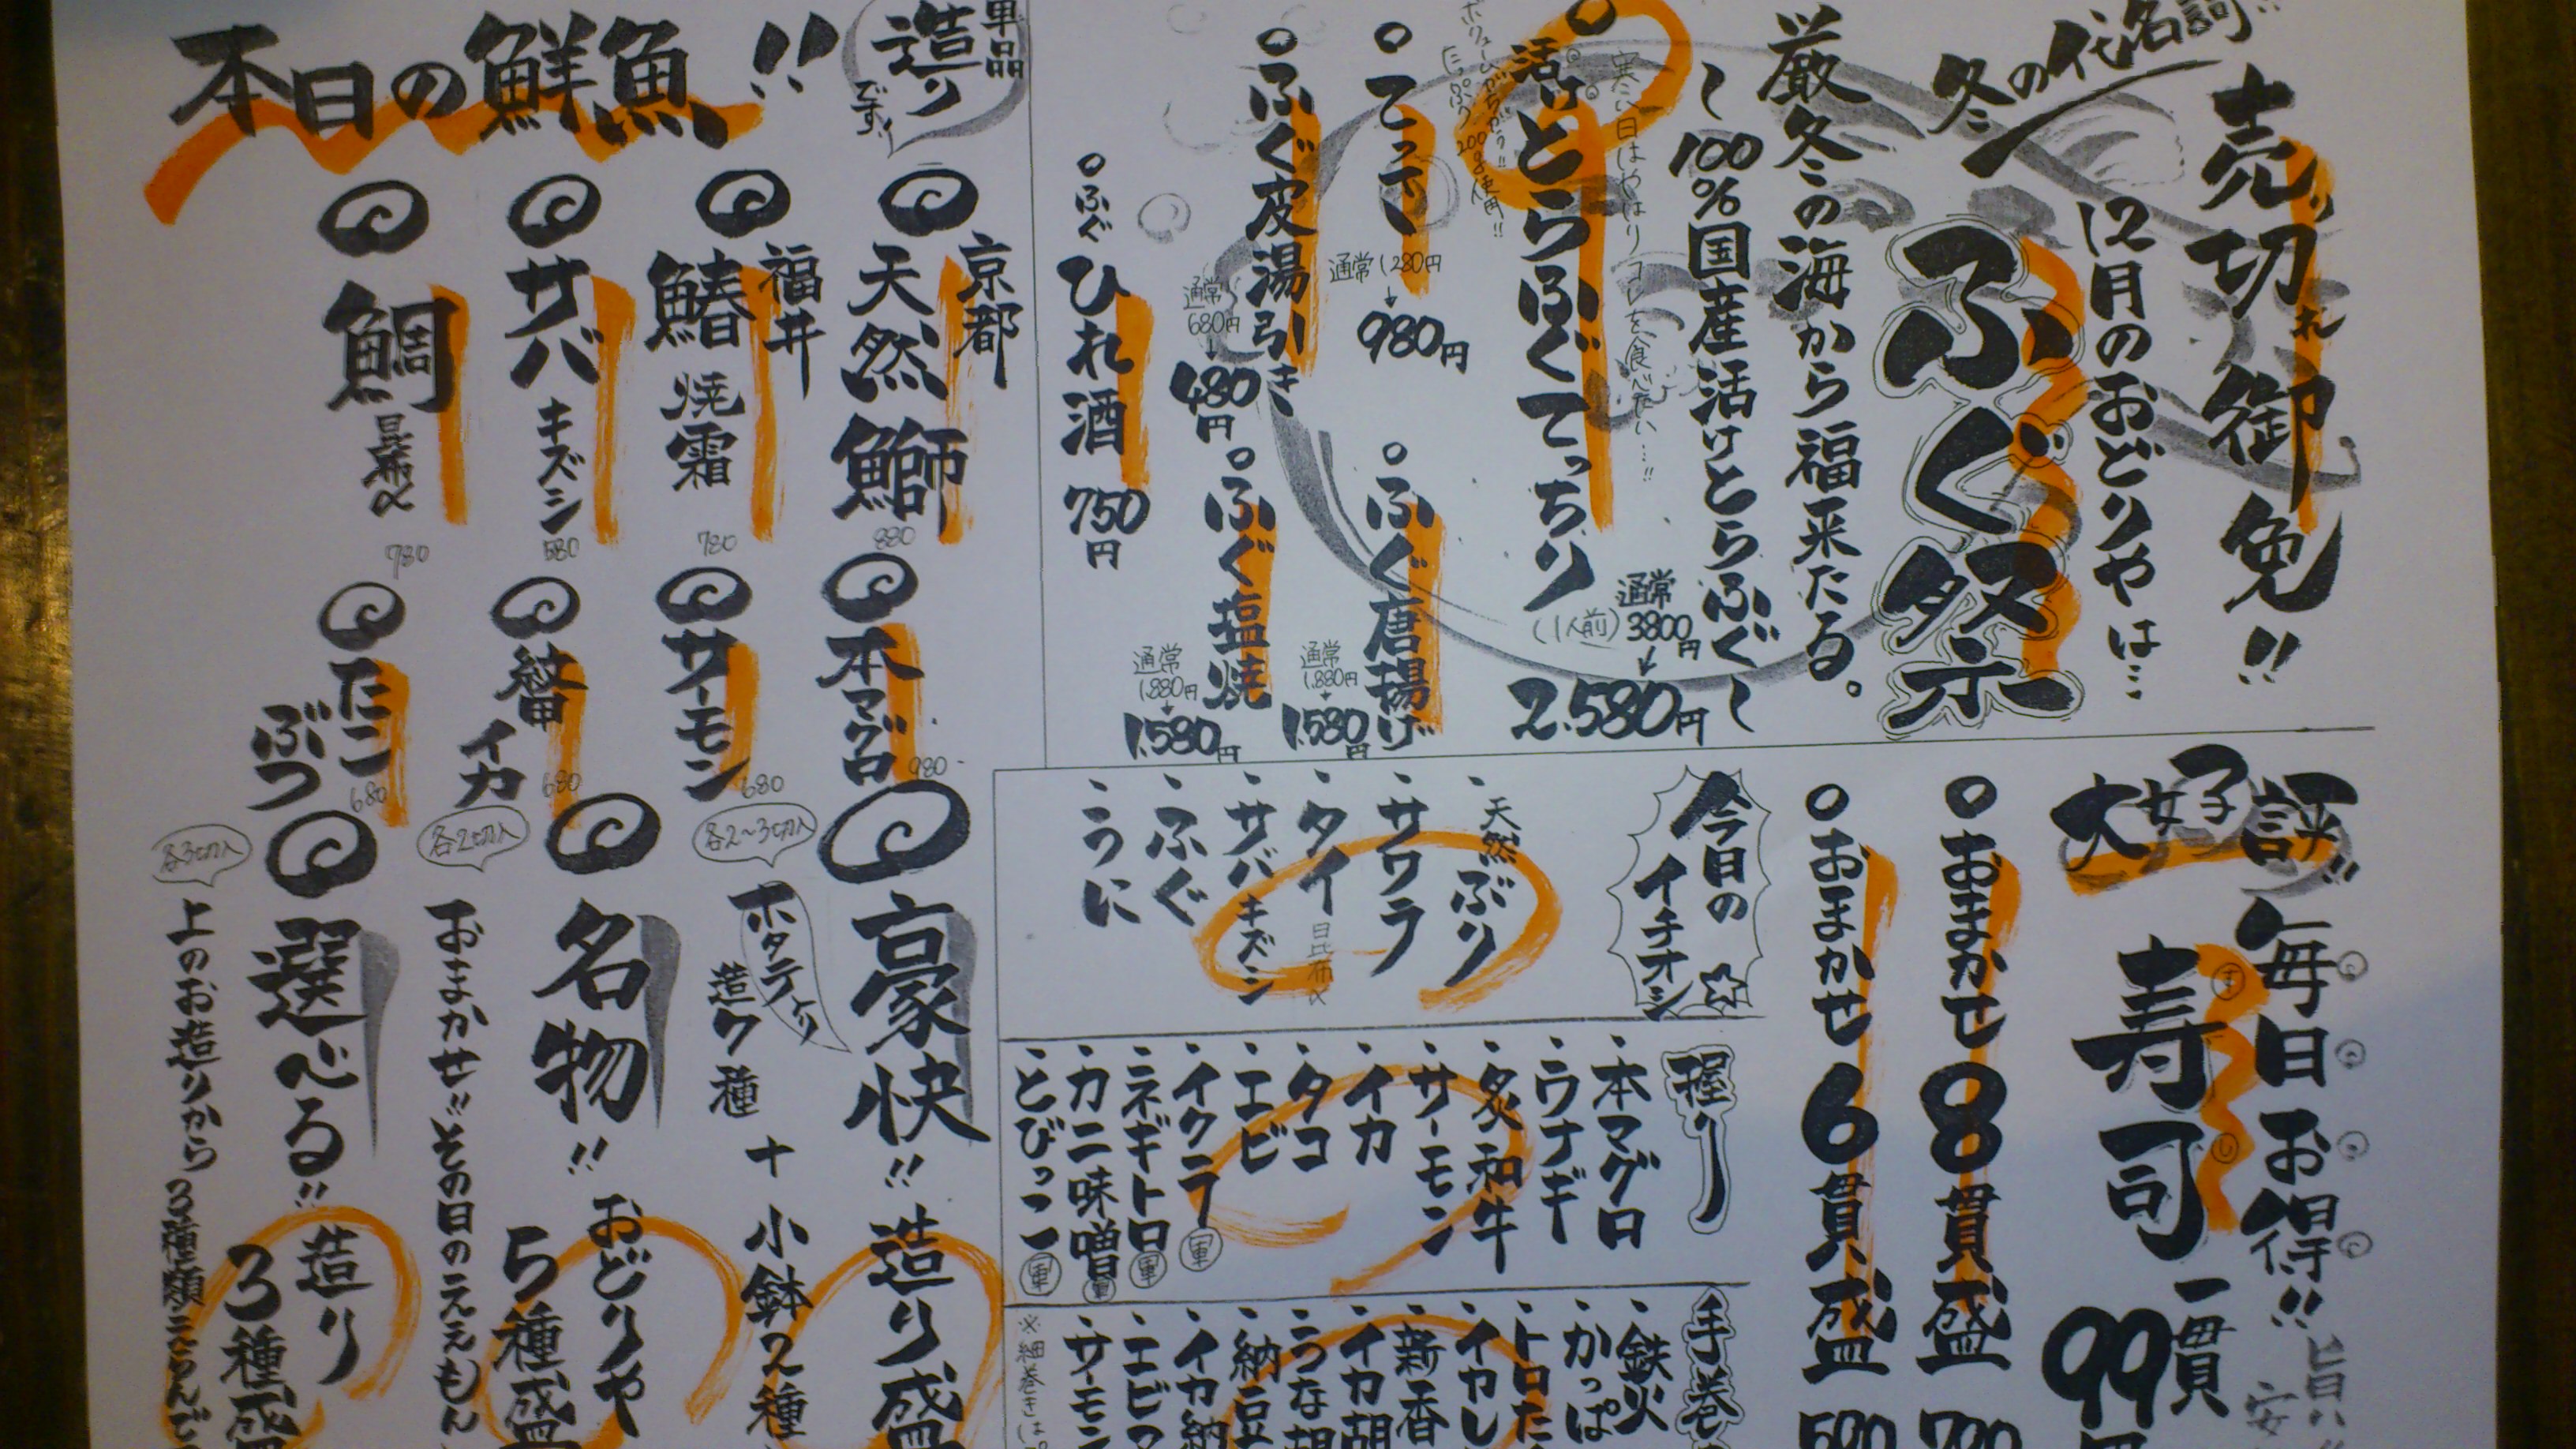 売り切れ御免!!
冬の代名詞!!
12月のおどりやは…
ふぐ祭
厳冬の海から福来たる。
〜100%国産活けとらふぐ〜
寒い日はやはりコレを食べたい…!!
活けとらふぐてっちり
(1人前)
通常
3800円
↓
2.580円
200g使用!!
てっさ
通常1.280円
↓
980円
ふぐ唐揚げ
通常
1.880円
↓
1.580円
ふぐ皮湯引き
通常
680円
↓
480円
ふぐ塩焼
通常
1.880円
↓
1.580円
ふぐひれ酒 750円
大好評!!
毎日お得!!
寿司
一貫
99円
おまかせ8貫盛
おまかせ6貫盛
今日のイチオシ
・天然ぶり
・サワラ
・タイ 昆布〆
・サバキズシ
・ふぐ
・うに
握り
・本マグロ
・ウナギ
・炙り和牛
・サーモン
・イカ
・タコ
・エビ
・イクラ 軍
・ネギトロ 軍
・カニ味噌 軍
・とびっこ 軍
手巻
・鉄火
・かっぱ
・新香
・サーモン
本日の鮮魚!!
単品
造り
です!
京都
天然鰤
880
福井
鰆 焼霜
780
サバ キズシ
580
鯛 昆布〆
780
本マグロ
980
サーモン
680
イカ
680
たこぶつ
680
豪快!! 造り盛
ホタテ入り
造り7種
+
小鉢2種
各2〜3切入
名物!! おどりや
5種盛
各2切入
おまかせ!!その日のええもん
選べる!! 造り
3種盛
各3切入
上のお造りから3種類えらんで